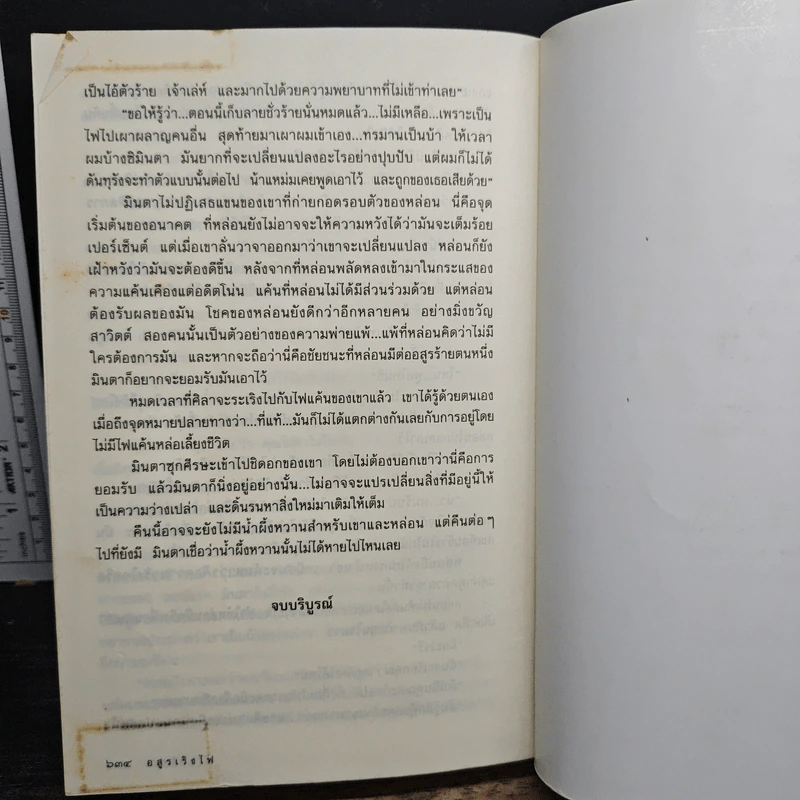 เป็นไอ้ตัวร้าย เจ้าเล่ห์ และมากไปด้วยความพยาบาทที่ไม่เข้าท่าเลย"
"ขอให้รู้ว่า...ตอนนี้เก็บลายชั่วร้ายนั่นหมดแล้ว...ไม่มีเหลือ...เพราะเป็น
ไฟไปเผาผลาญคนอื่น สุดท้ายมาเผาผมเข้าเอง...ทรมานเป็นบ้า ให้เวลา
ผมบ้างซิมินตา มันยากที่จะเปลี่ยนแปลงอะไรอย่างปุบปับ แต่ผมก็ไม่ได้
ดันทุรังจะทำตัวแบบนั้นต่อไป น้าแหม่มเคยพูดเอาไว้ และถูกของเธอเสียด้วย"
มินตาไม่ปฏิเสธแขนของเขาที่ก่ายกอดรอบตัวของหล่อน นี่คือจุด
เริ่มต้นของอนาคต ที่หล่อนยังไม่อาจจะให้ความหวังได้ว่ามันจะเต็มร้อย
เปอร์เซ็นต์ แต่เมื่อเขาลั่นวาจาออกมาว่าเขาจะเปลี่ยนแปลง หล่อนก็ยัง
เฝ้าหวังว่ามันจะต้องดีขึ้น หลังจากที่หล่อนพลัดหลงเข้ามาในกระแสของ
ความแค้นเคืองแต่อดีตโน่น แค้นที่หล่อนไม่ได้มีส่วนร่วมด้วย แต่หล่อน
ต้องรับผลของมัน โชคของหล่อนยังดีกว่าอีกหลายคน อย่างมิ่งขวัญ
สาวิตต์ สองคนนั้นเป็นตัวอย่างของความพ่ายแพ้...แพ้ที่หล่อนคิดว่าไม่มี
ใครต้องการมัน และหากจะถือว่านี่คือชัยชนะที่หล่อนมีต่ออสูรร้ายตนหนึ่ง
มินตาก็อยากจะยอมรับมันเอาไว้
หมดเวลาที่ศิลาจะระเริงไปกับไฟแค้นของเขาแล้ว เขาได้รู้ด้วยตนเอง
เมื่อถึงจุดหมายปลายทางว่า...ที่แท้...มันก็ไม่ได้แตกต่างกันเลยกับการอยู่โดย
ไม่มีไฟแค้นหล่อเลี้ยงชีวิต
มินตาซุกศีรษะเข้าไปชิดอกของเขา โดยไม่ต้องบอกเขาว่านี่คือการ
ยอมรับ แล้วมินตาก็นิ่งอยู่อย่างนั้น...ไม่อาจจะแปรเปลี่ยนสิ่งที่มีอยู่นี้ให้
เป็นความว่างเปล่า และดิ้นรนหาสิ่งใหม่มาเติมให้เต็ม
คืนนี้อาจจะยังไม่มีน้ำผึ้งหวานสำหรับเขาและหล่อน แต่คืนต่อๆ
ไปที่ยังมี มินตาเชื่อว่าน้ำผึ้งหวานนั้นไม่ได้หายไปไหนเลย
จบบริบูรณ์
๖๓๔ อสูรเริงไฟ